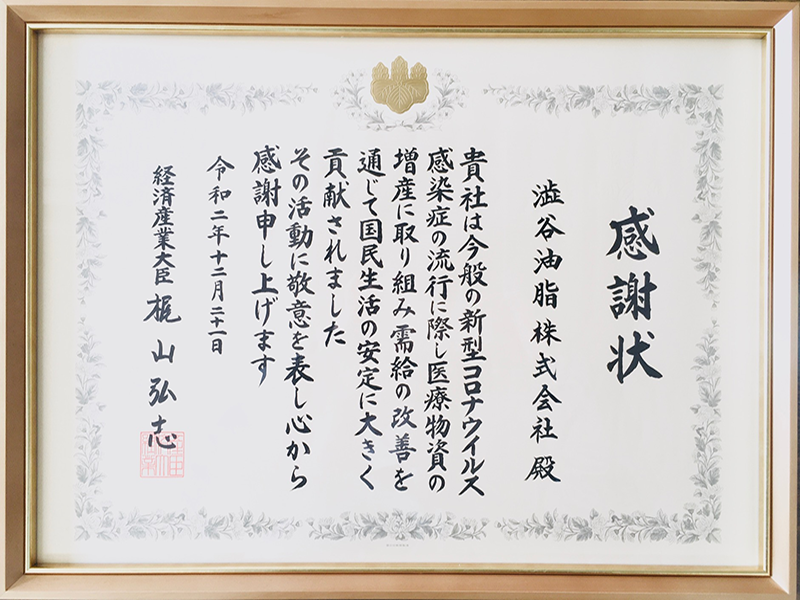 感謝状
澁谷油脂株式会社殿
貴社は今般の新型コロナウイルス
感染症の流行に際し医療物資の
増産に取り組み需給の改善を
通じて国民生活の安定に大きく
貢献されました
その活動に敬意を表し心から
感謝申し上げます
令和二年十二月二十一日
経済産業大臣 梶山弘志